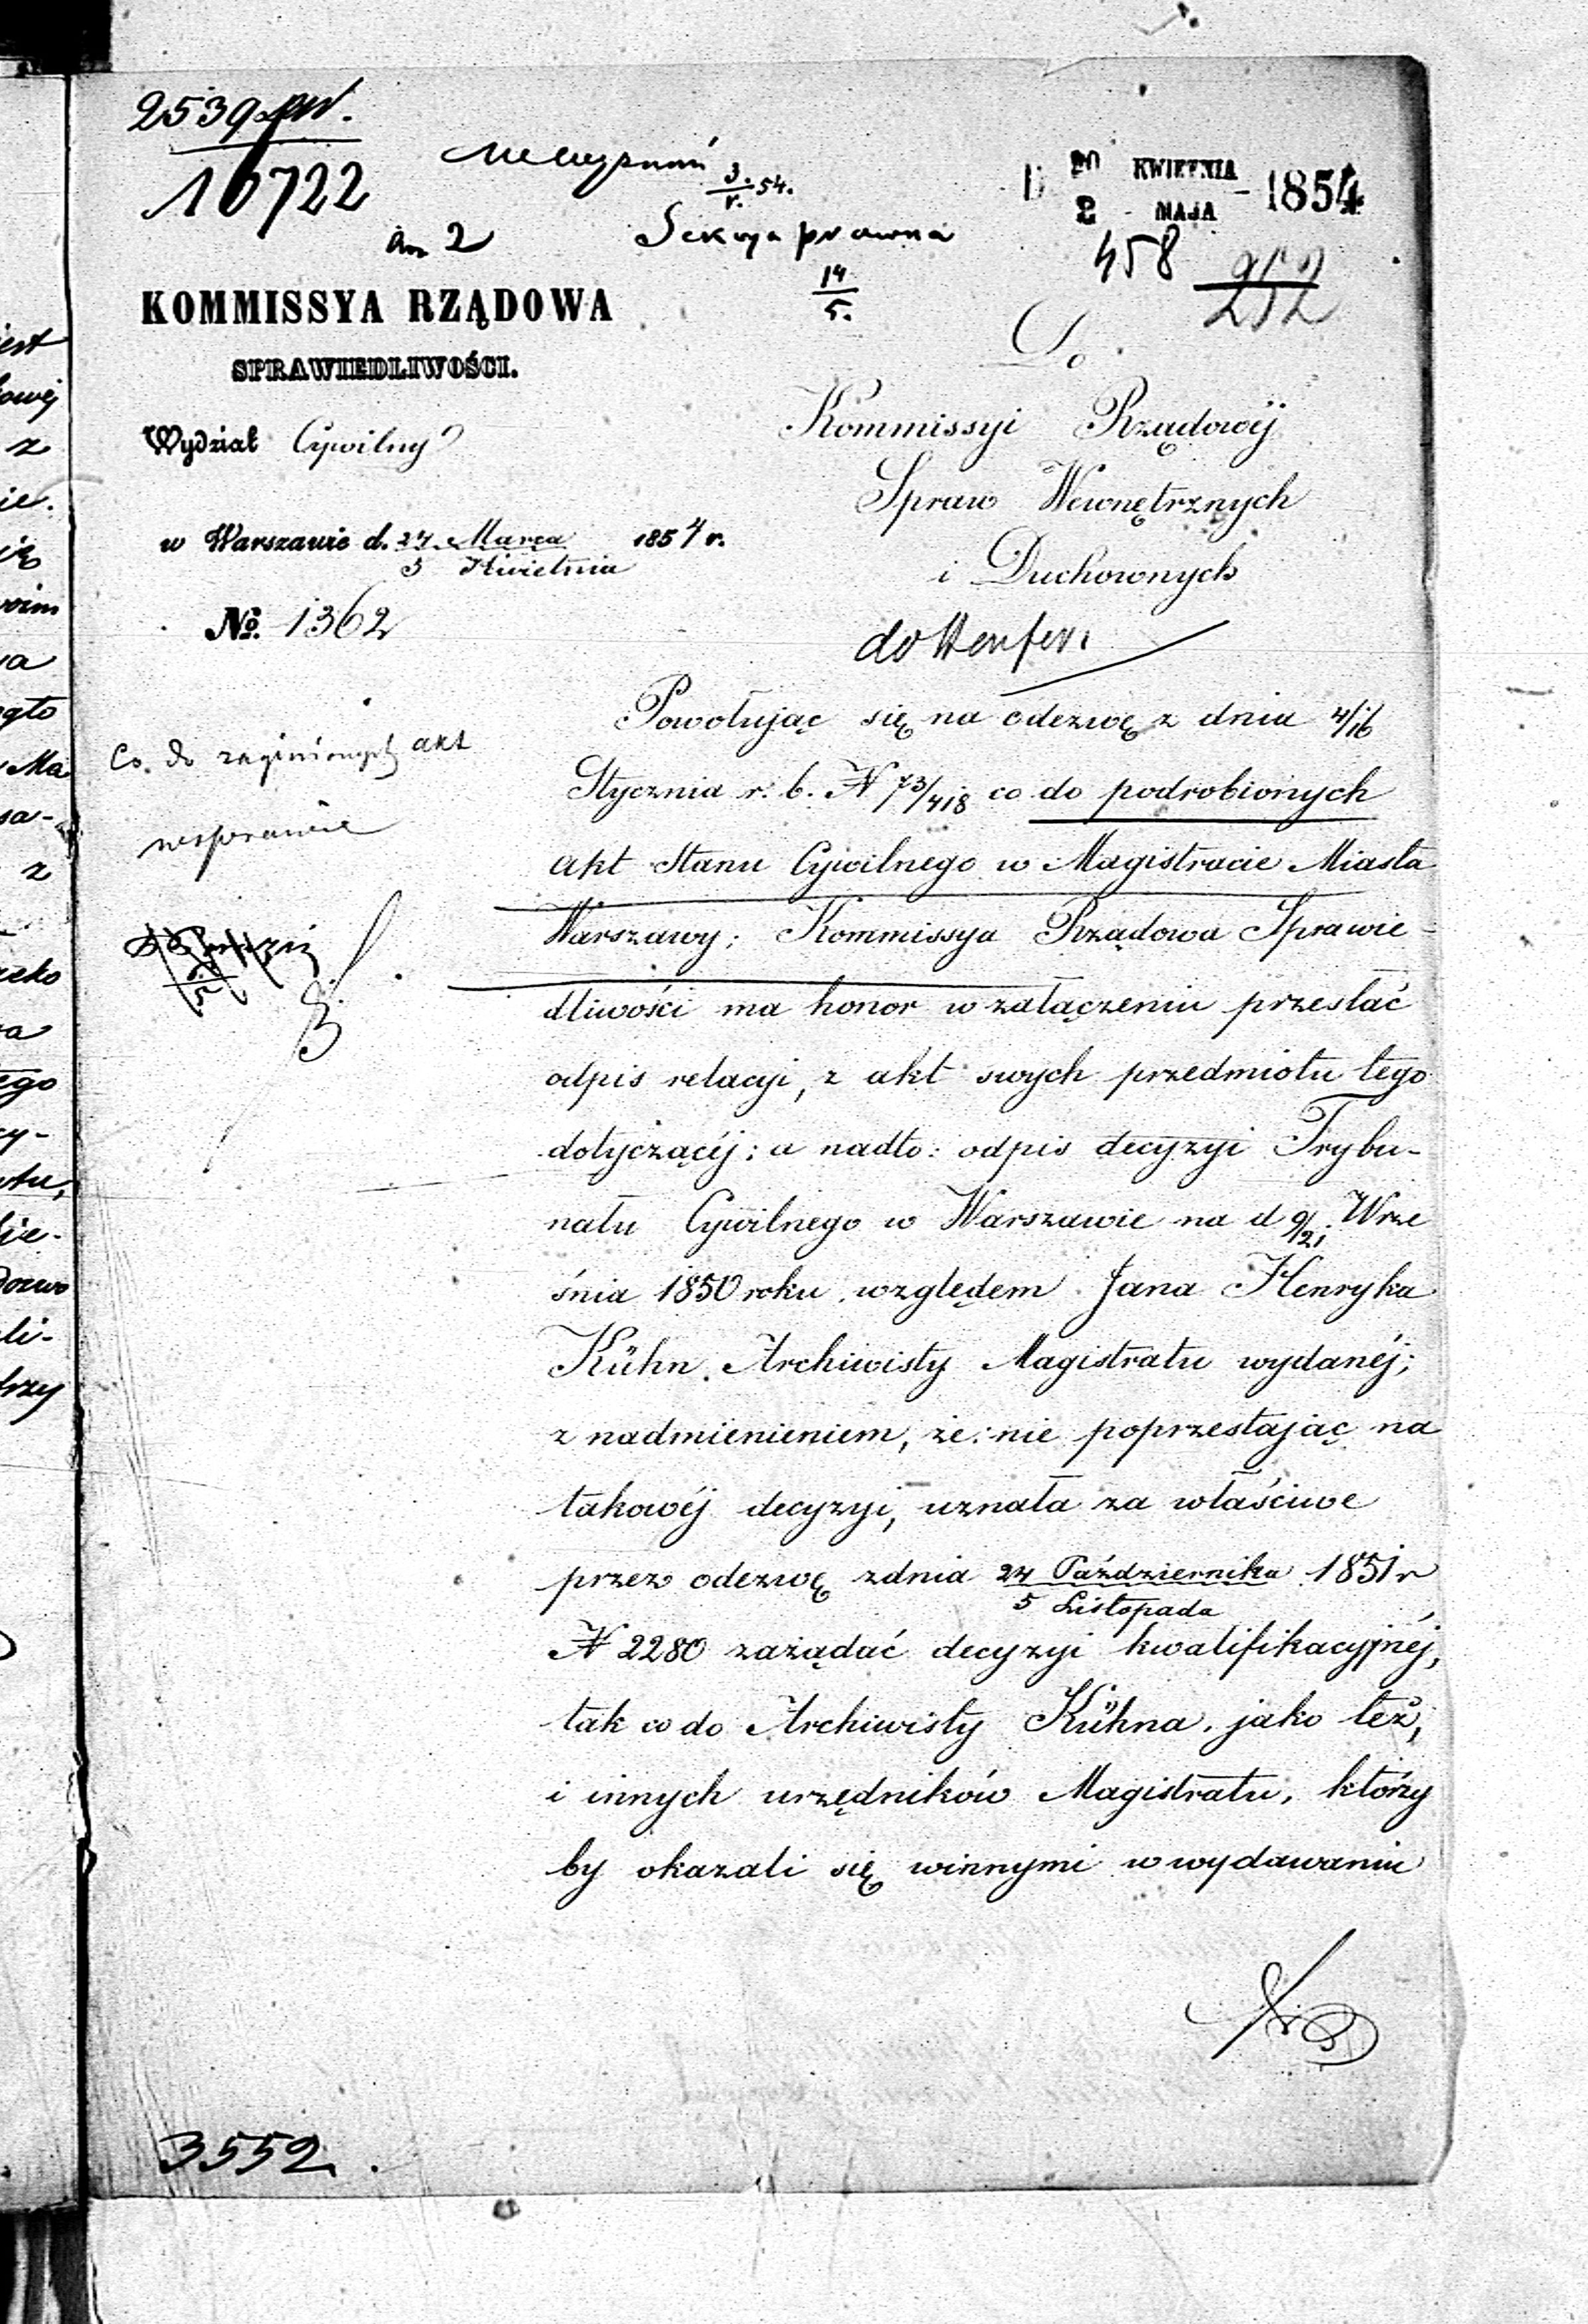 2539
16722
3./V. 54.
Sekcya prawna
14/5.
an 2
D 20 KWIETNIA
2 MAJA - 1854
458
252
KOMMISSYA RZĄDOWA
SPRAWIEDLIWOŚCI.
Wydział Cywilny
w Warszawie d. 24 Marca 1854 r.
5 Kwietnia
No. 1362
Do
Kommissyi Rządowéj
Spraw Wewnętrznych
i Duchownych
Co do zaginionych akt
Powołując się na odezwę z dnia 4/16
Stycznia r. b. N 73/418 co do podrobionych
akt Stanu Cywilnego w Magistracie Miasta
Warszawy; Kommissya Rządowa Sprawie-
dliwości ma honor w załączeniu przesłać
odpis relacyi, z akt swych przedmiotu tego
dotyczącéj; a nadto: odpis decyzyi Trybu-
nału Cywilnego w Warszawie na d 9/21 Wrze
śnia 1850 roku względem Jana Henryka
Kühn Archiwisty Magistratu wydanéj;
z nadmienieniem, że: nie poprzestając na
takowéj decyzyi, uznała za właściwe
przez odezwę z dnia 24 Października 1851 r
5 Listopada
N 2280 zażądać decyzyi kwalifikacyjnéj,
tak co do Archiwisty Kühna, jako też,
i innych urzędników Magistratu, którzy
by okazali się winnymi w wydawaniu
3552